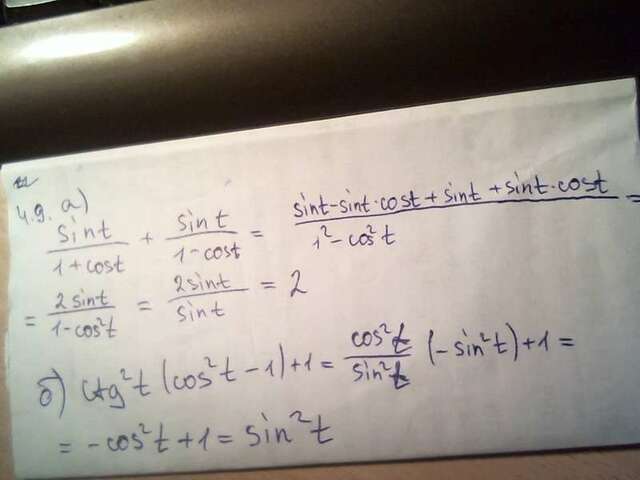 4.9. а)
sint/(1+cost) + sint/(1-cost) = (sint-sint·cost+sint+sint·cost)/(1²-cos²t) =
= 2sint/(1-cos²t) = 2sint/sint = 2
б) ctg²t (cos²t-1)+1 = cos²t/sin²t (-sin²t)+1 =
= -cos²t+1 = sin²t